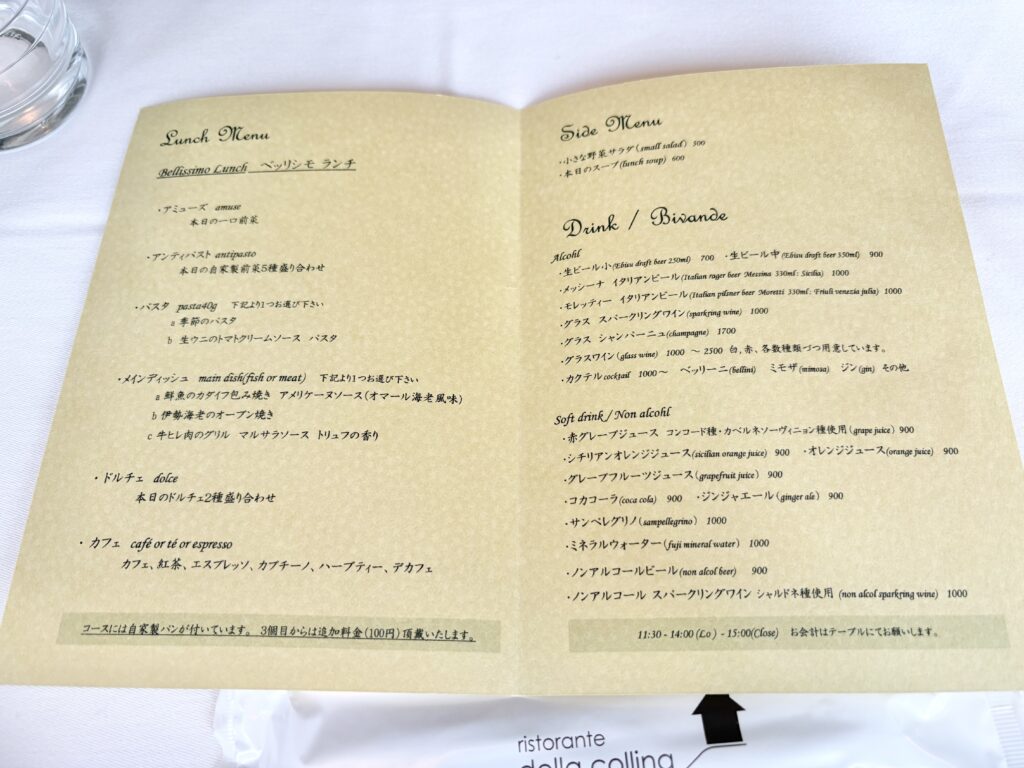 Lunch Menu
Bellissimo Lunch ベッリシモ ランチ
・アミューズ amuse
本日の一口前菜
・アンティパスト antipasto
本日の自家製前菜5種盛り合わせ
・パスタ pasta40g 下記より1つお選び下さい
a 季節のパスタ
b 生ウニのトマトクリームソース パスタ
・メインディッシュ main dish(fish or meat) 下記より1つお選び下さい
a 鮮魚のカダイフ包み焼き アメリケーヌソース(オマール海老風味)
b 伊勢海老のオーブン焼き
c 牛ヒレ肉のグリル マルサラソース トリュフの香り
・ドルチェ dolce
本日のドルチェ2種盛り合わせ
・カフェ café or té or espresso
カフェ、紅茶、エスプレッソ、カプチーノ、ハーブティー、デカフェ
コースには自家製パンが付いています。 3個目からは追加料金(100円)頂戴いたします。
Side Menu
・小さな野菜サラダ(small salad) 500
・本日のスープ(lunch soup) 600
Drink / Bivande
Alcohl
・生ビール小(Ebisu draft beer 250ml) 700 ・生ビール中(Ebisu draft beer 350ml) 900
・メッシーナ イタリアンビール(Italian rager beer Messina 330ml : Sicilia) 1000
・モレッティー イタリアンビール(Italian pilsner beer Moretti 330ml : Friuli venezia julia) 1000
・グラス スパークリングワイン(sparkring wine) 1000
・グラス シャンパーニュ(champagne) 1700
・グラスワイン(glass wine) 1000 ～ 2500 白,赤、各数種類づつ用意しています。
・カクテル cocktail 1000～ ベッリーニ(bellini) ミモザ(mimosa) ジン(gin) その他。
Soft drink / Non alcohl
・赤グレープジュース コンコード種・カベルネソーヴィニョン種使用(grape juice) 900
・シチリアンオレンジジュース(sicilian orange juice) 900 ・オレンジジュース(orange juice) 900
・グレープフルーツジュース(grapefruit juice) 900
・コカコーラ(coca cola) 900 ・ジンジャエール(ginger ale) 900
・サンペレグリノ(sampellegrino) 1000
・ミネラルウォーター(fuji mineral water) 1000
・ノンアルコールビール(non alcol beer) 900
・ノンアルコール スパークリングワイン シャルドネ種使用 (non alcol sparkring wine) 1000
11:30 - 14:00 (Lo) - 15:00(Close) お会計はテーブルにてお願いします。
ristorante
della collina